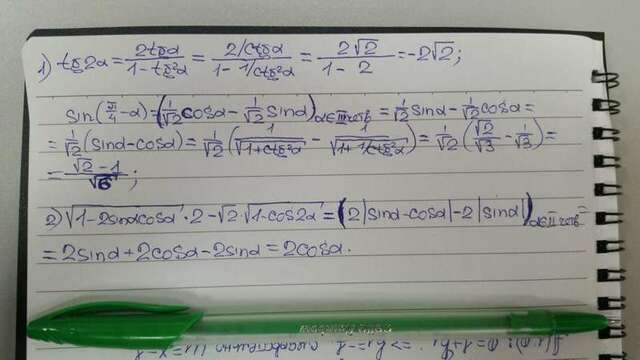 1) tg2α = 2tgα / (1 - tg²α) = (2/ctgα) / (1 - 1/ctg²α) = 2√2 / (1 - 2) = -2√2;
sin(π/4 - α) = (1/√2 cosα - 1/√2 sinα) α∈III четв = 1/√2 sinα - 1/√2 cosα =
= 1/√2 (sinα - cosα) = 1/√2 (1/√(1+ctg²α) - 1/√(1+1/ctg²α)) = 1/√2 (√2/√3 - 1/√3) =
= (√2 - 1)/√6;
2) √(1-2sinαcosα) · 2 - √2 · √(1-cos2α) = (2|sinα-cosα| - 2|sinα|) α∈II четв =
= 2sinα + 2cosα - 2sinα = 2cosα.